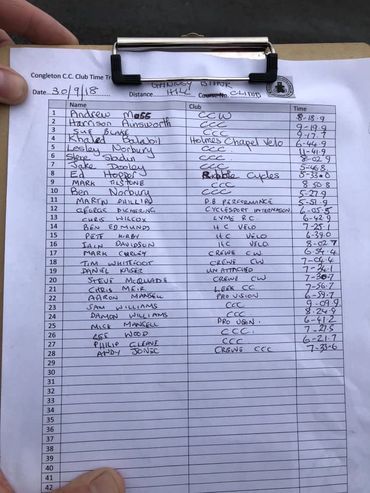 Congleton C.C. Club Time Tr
Date 30/9/18 Distance HILL Course No. CLIMB
Name Club Time
1 Andrew Mass CCW 8-18.9
2 Harrison Ainsworth CCC 9-19.9
3 Sue CCC 9-17.7
4 Khaled Holmes Chapel Velo 6-44.9
5 Lesley Norbury CCC 11-41.9
6 Steve CCC 8-02.9
7 Jake Dooley CCC 5-46.8
8 Ed Hopper Ribble Cycles 5-33.0
9 MARK CCC 8 50.8
10 Ben Norbury CCC 5-27.9
11 MARTIN PHILLIPS P.B PERFORMANCE 5-51.9
12 GEORGE CYCLESPORT 6-05.5
13 CHRIS WILCOX LYME RC 6-42.9
14 BEN EDMUNDS HC VELO 7-25.1
15 PETE HC VELO 6-39.0
16 IAIN DAVIDSON HC VELO 8-02.7
17 MARK CURLEY CREWE CW 6-54.4
18 TIM WHITEHOT CREWE CW 7-04.4
19 DANIEL KASER UNATTACHED 7-24.1
20 STEVE CREWE CW 7-30.7
21 CHRIS MEIR LEEK CC 7-56.7
22 AARON MANSELL PRO VISION 6-59.7
23 SAM WILLIAMS CCC 9-09.9
24 DAMON WILLIAMS CCC 8-24.9
25 MICK MANSELL PRO VISION. 6-41.2
26 LEE WOOD CCC. 7-21.5
27 PHILIP CLEAVE CCC 6-21.7
28 ANDY JONES CREWE CCC 7-33.6
29
30
31
32
33
34
35
36
37
38
39
40
41
42